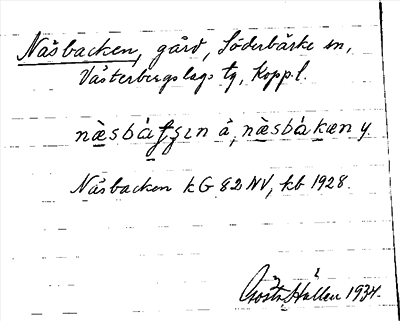 Näsbacken, gård, Söderbärke sn,
Västerbergslags tg, Kopp.l.
næsbàʃʃɪn ä, næsbàkæn y
Näsbacken kG 82 NV, kb 1928.
Gösta Hallén 1934.